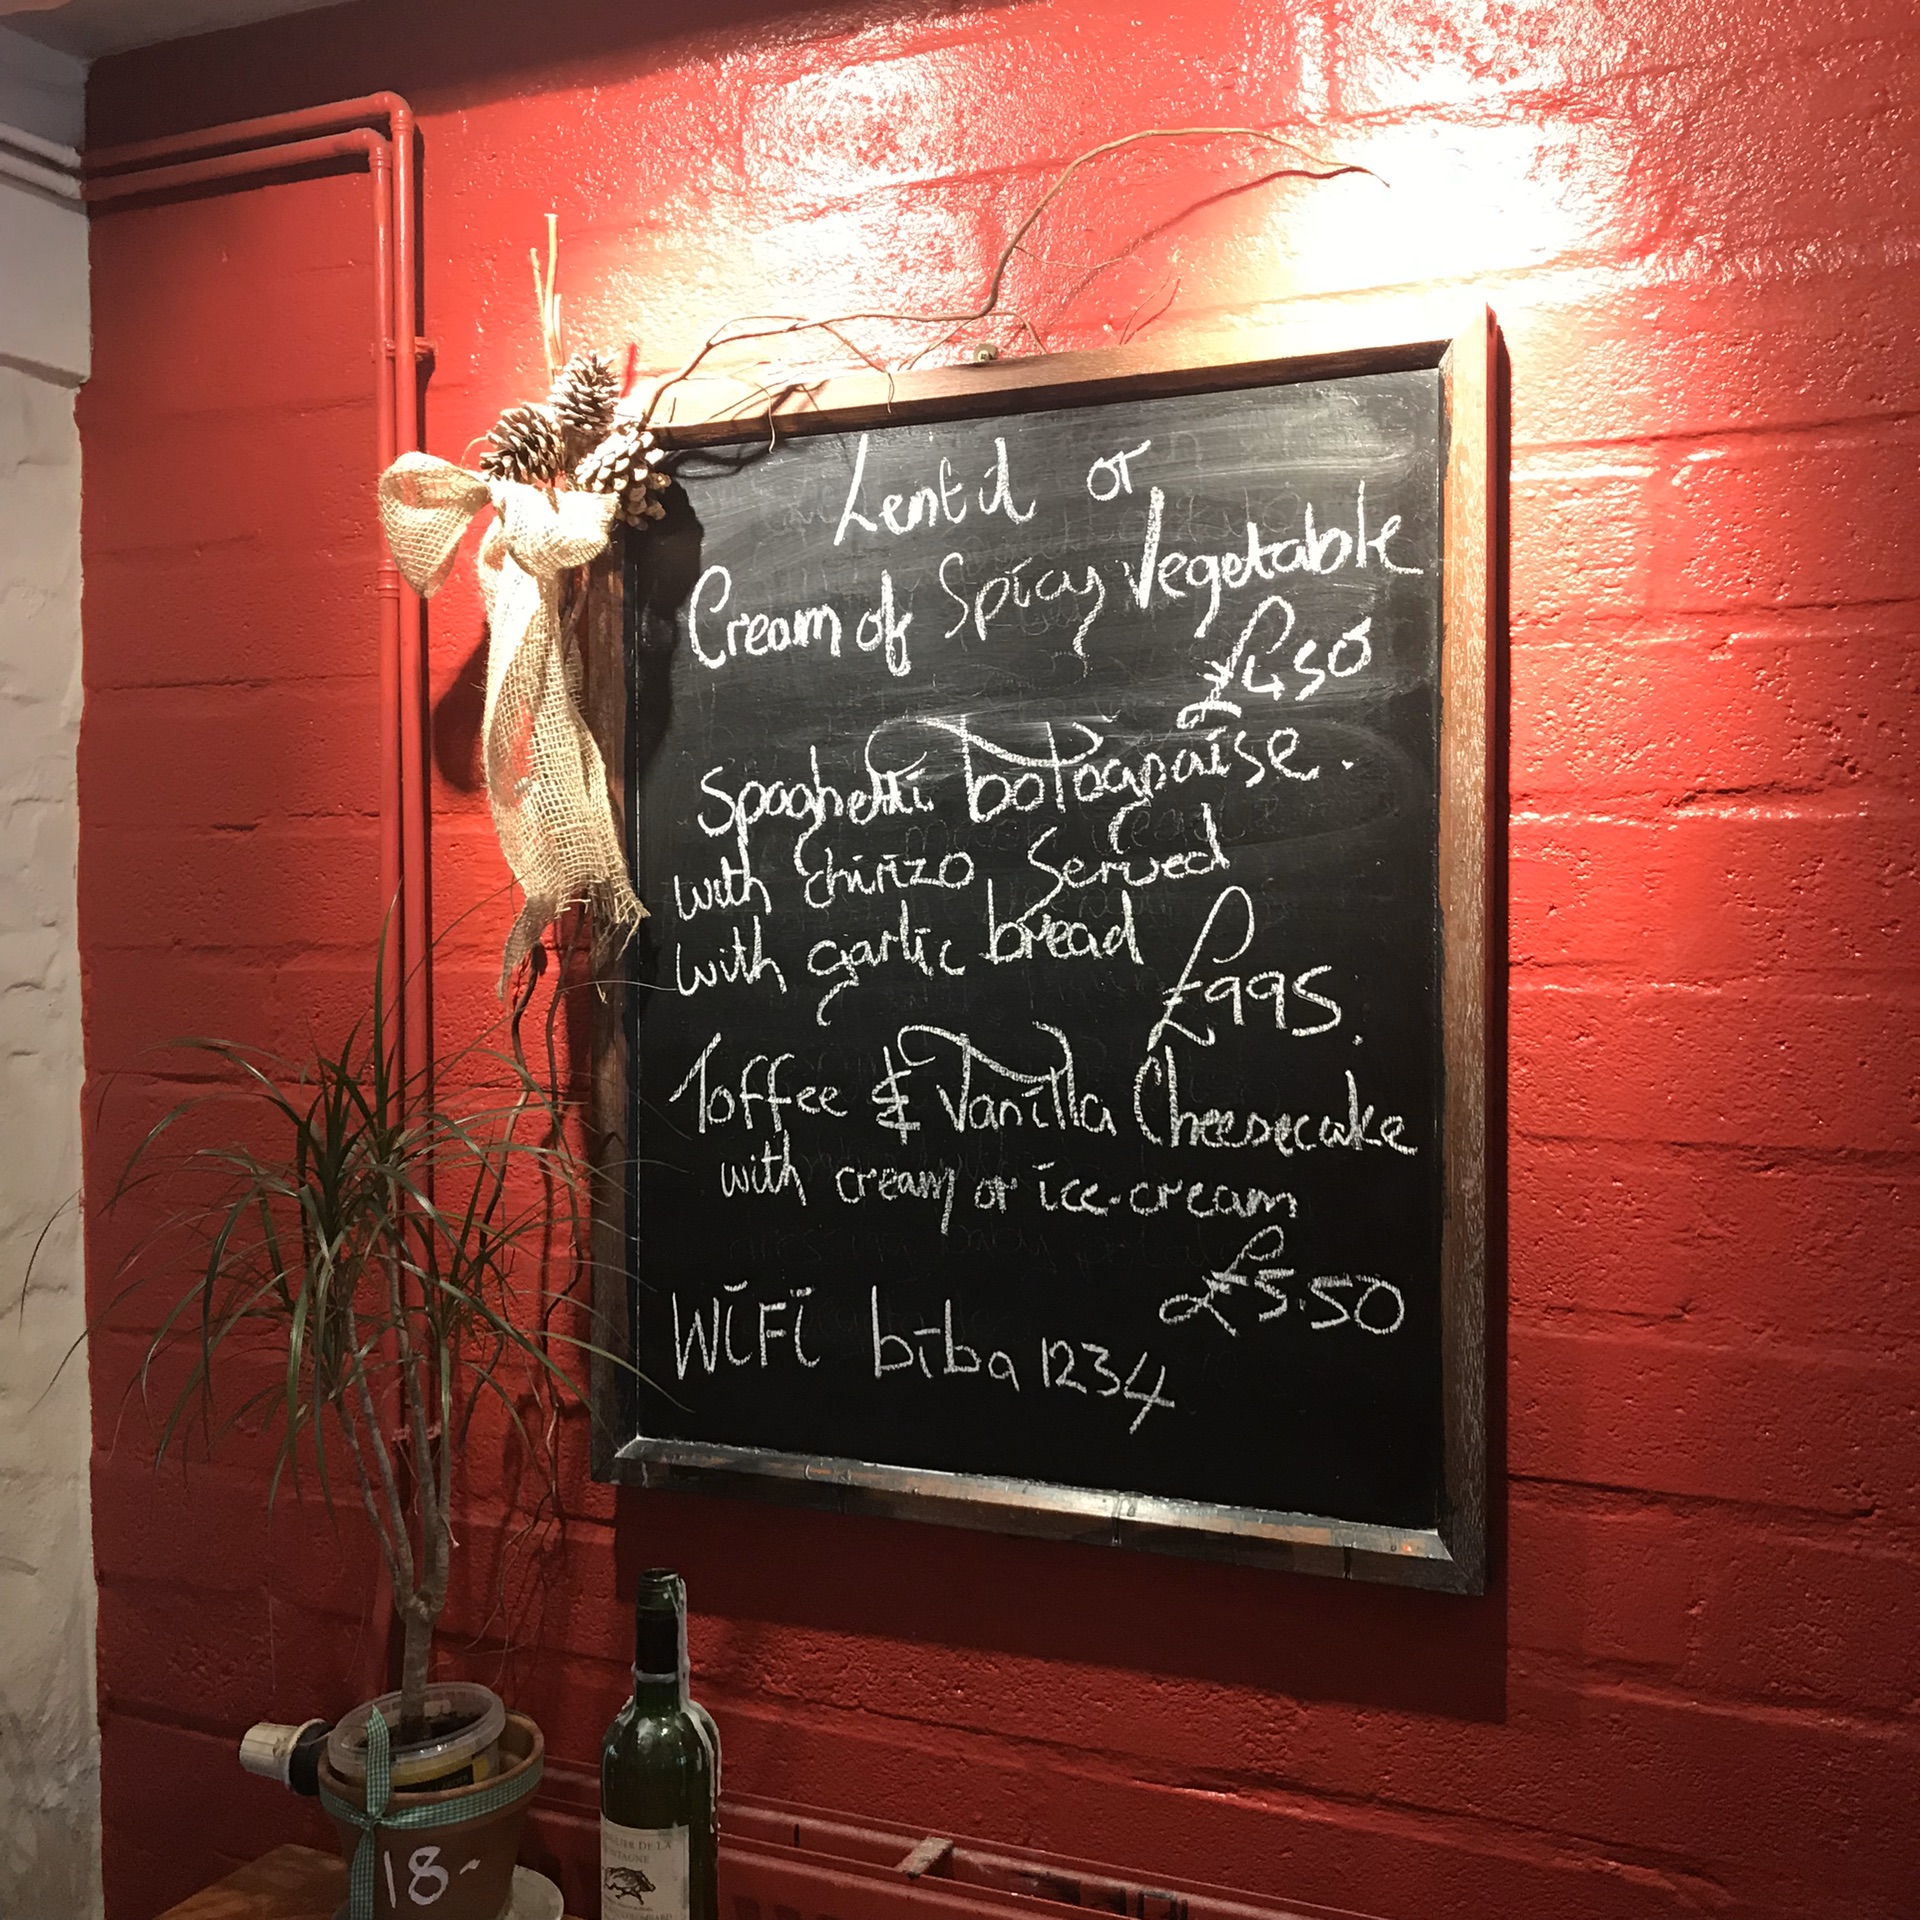 Lentil or
Cream of Spicy Vegetable
£4.50
Spaghetti bolognaise.
with chirizo Served
with garlic bread
£995.
Toffee & Vanilla Cheesecake
with cream or ice-cream
£5.50
WiFi biba 1234
18-